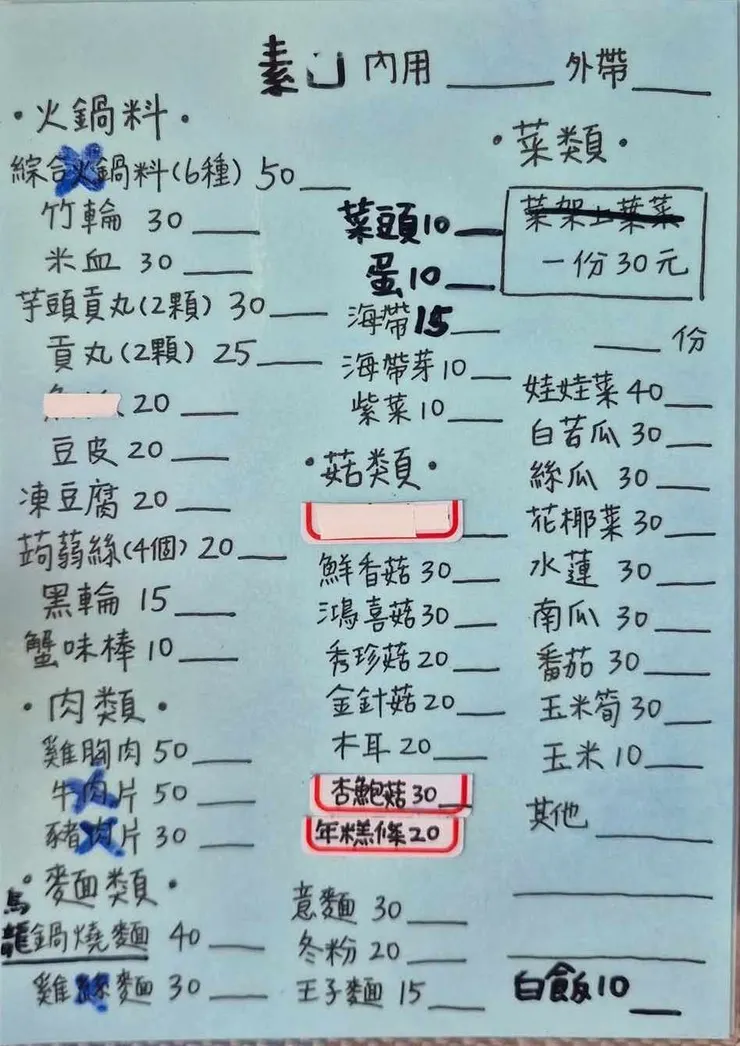 素 內用 ____ 外帶 ____
·火鍋料·
綜合火鍋料(6種) 50 ____
竹輪 30 ____
米血 30 ____
芋頭貢丸(2顆) 30 ____
貢丸(2顆) 25 ____
20 ____
豆皮 20 ____
凍豆腐 20 ____
蒟蒻絲(4個) 20 ____
黑輪 15 ____
蟹味棒 10 ____
·肉類·
雞胸肉 50 ____
牛肉片 50 ____
豬肉片 30 ____
·麵類·
烏龍鍋燒麵 40 ____
雞絲麵 30 ____
菜頭10 ____
蛋10 ____
海帶15 ____
海帶芽10 ____
紫菜10 ____
·菇類·
____
鮮香菇30 ____
鴻喜菇30 ____
秀珍菇20 ____
金針菇20 ____
木耳20 ____
杏鮑菇30 ____
年糕條20
意麵 30 ____
冬粉 20 ____
王子麵 15 ____
·菜類·
菜架上葉菜
一份30元
____ 份
娃娃菜40 ____
白苦瓜30 ____
絲瓜 30 ____
花椰菜30 ____
水蓮 30 ____
南瓜 30 ____
番茄 30 ____
玉米筍30 ____
玉米10 ____
其他 ____
白飯10 ____